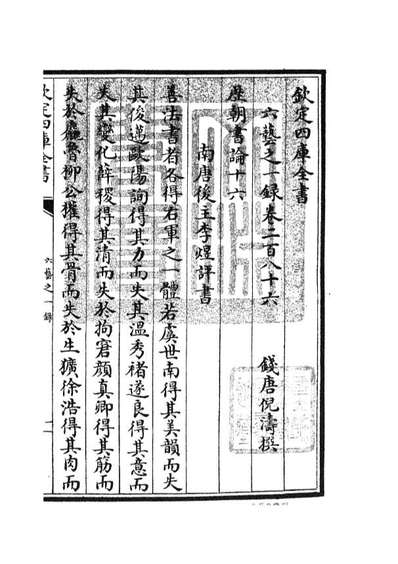 欽定四庫全書
六藝之一録卷二百八十六
錢唐倪濤撰
歷朝書論十六
南唐後主李煜評書
善法書者各得右軍之一體若虞世南得其美韻而失
其俊邁歐陽詢得其力而失其温秀褚遂良得其意而
失其變化薛稷得其清而失於拘窘顔真卿得其筋而
失於麄魯柳公權得其骨而失於生獷徐浩得其肉而
欽定四庫全書
六藝之一録